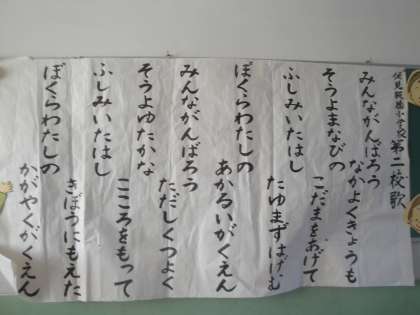 伏見板橋小学校 第二校歌
みんながんばろう
なかよくきょうも
そうよまなびの
こだまをあげて
ふしみいたはし
たゆまずはげむ
ぼくらわたしの
あかるいがくえん
みんながんばろう
ただしくつよく
そうよゆたかな
こころをもって
ふしみいたはし
きぼうにもえた
ぼくらわたしの
かがやくがくえん